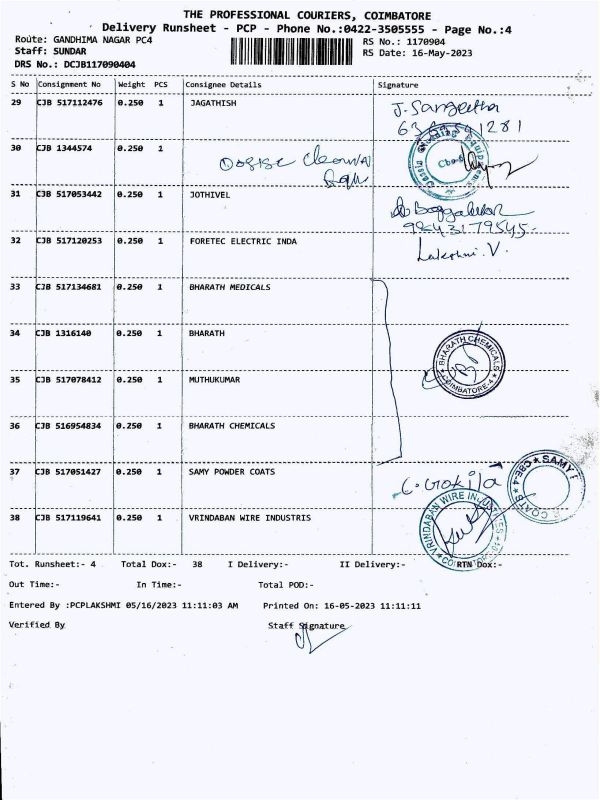 THE PROFESSIONAL COURIERS, COIMBATORE
Delivery Runsheet - PCP - Phone No.:0422-3505555 - Page No.:4
Route: GANDHIMA NAGAR PC4
RS No.: 1170904
Staff: SUNDAR
RS Date: 16-May-2023
DRS No.: DCJB117090404
S No Consignment No Weight PCS Consignee Details Signature
29 CJB 517112476 0.250 1 JAGATHISH J. Sangeetha
1281
30 CJB 1344574 0.250 1
31 CJB 517053442 0.250 1 JOTHIVEL
9843179545
32 CJB 517120253 0.250 1 FORETEC ELECTRIC INDA Lakshmi. V.
33 CJB 517134681 0.250 1 BHARATH MEDICALS
34 CJB 1316140 0.250 1 BHARATH
BHARATH CHEMICALS
COIMBATORE-4
35 CJB 517078412 0.250 1 MUTHUKUMAR
36 CJB 516954834 0.250 1 BHARATH CHEMICALS
37 CJB 517051427 0.250 1 SAMY POWDER COATS
SAMY
COATS
CBE-4
38 CJB 517119641 0.250 1 VRINDABAN WIRE INDUSTRIS
VRINDABAN WIRE
Tot. Runsheet:- 4 Total Dox:- 38 I Delivery:- II Delivery:- RTN Dox:-
Out Time:- In Time:- Total POD:-
Entered By :PCPLAKSHMI 05/16/2023 11:11:03 AM Printed On: 16-05-2023 11:11:11
Verified By Staff Signature